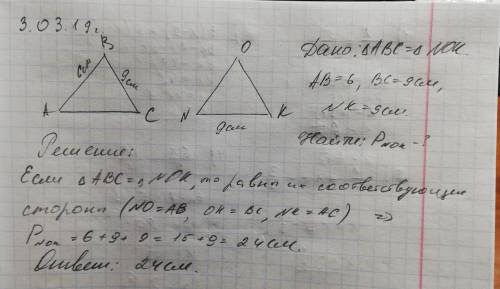 3.03.19г.
B
6см
9см
A
C
O
N
K
9см
Дано: △ABC = △NOK
AB=6, BC=9см,
NK=9см.
Найти: Pₙₒₖ-?
Решение:
Если △ABC=△NOK, то равны их соответствующие
стороны (NO=AB, OK=BC, NK=AC) =>
Pₙₒₖ=6+9+9=15+9=24см.
Ответ: 24см.